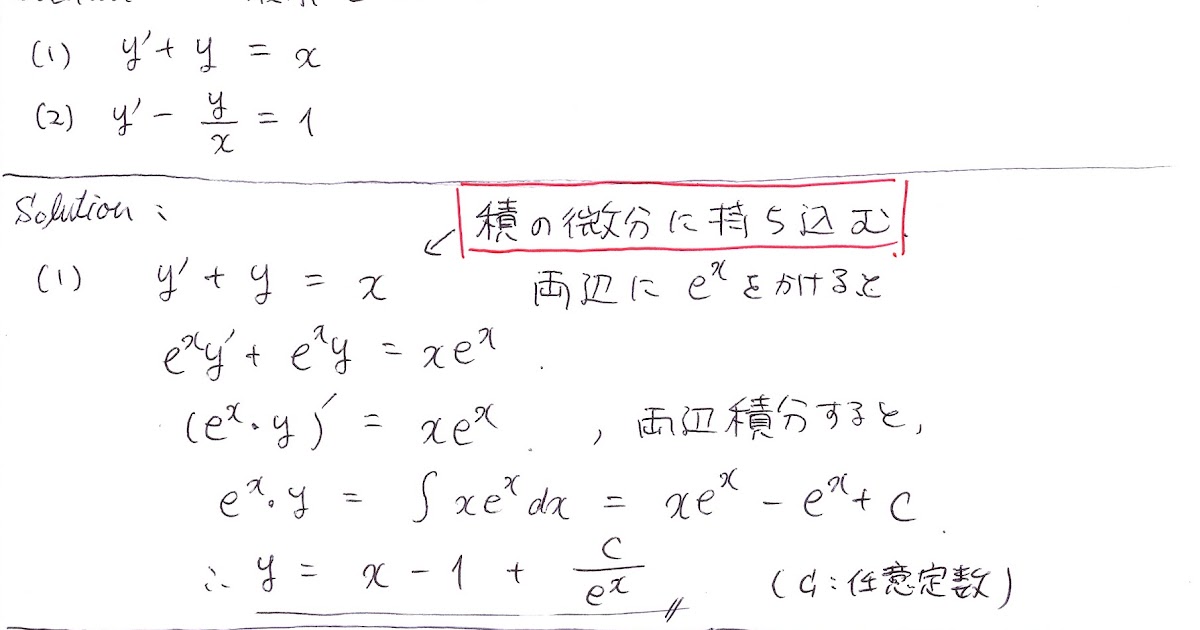 (1) y' + y = x
(2) y' - y/x = 1
Solution :
積の微分に持ち込む
(1) y' + y = x 両辺に e^x をかけると
e^x y' + e^x y = xe^x
(e^x・y)' = xe^x , 両辺積分すると,
e^x・y = ∫ xe^x dx = xe^x - e^x + C
∴ y = x - 1 + C/e^x (C : 任意定数)